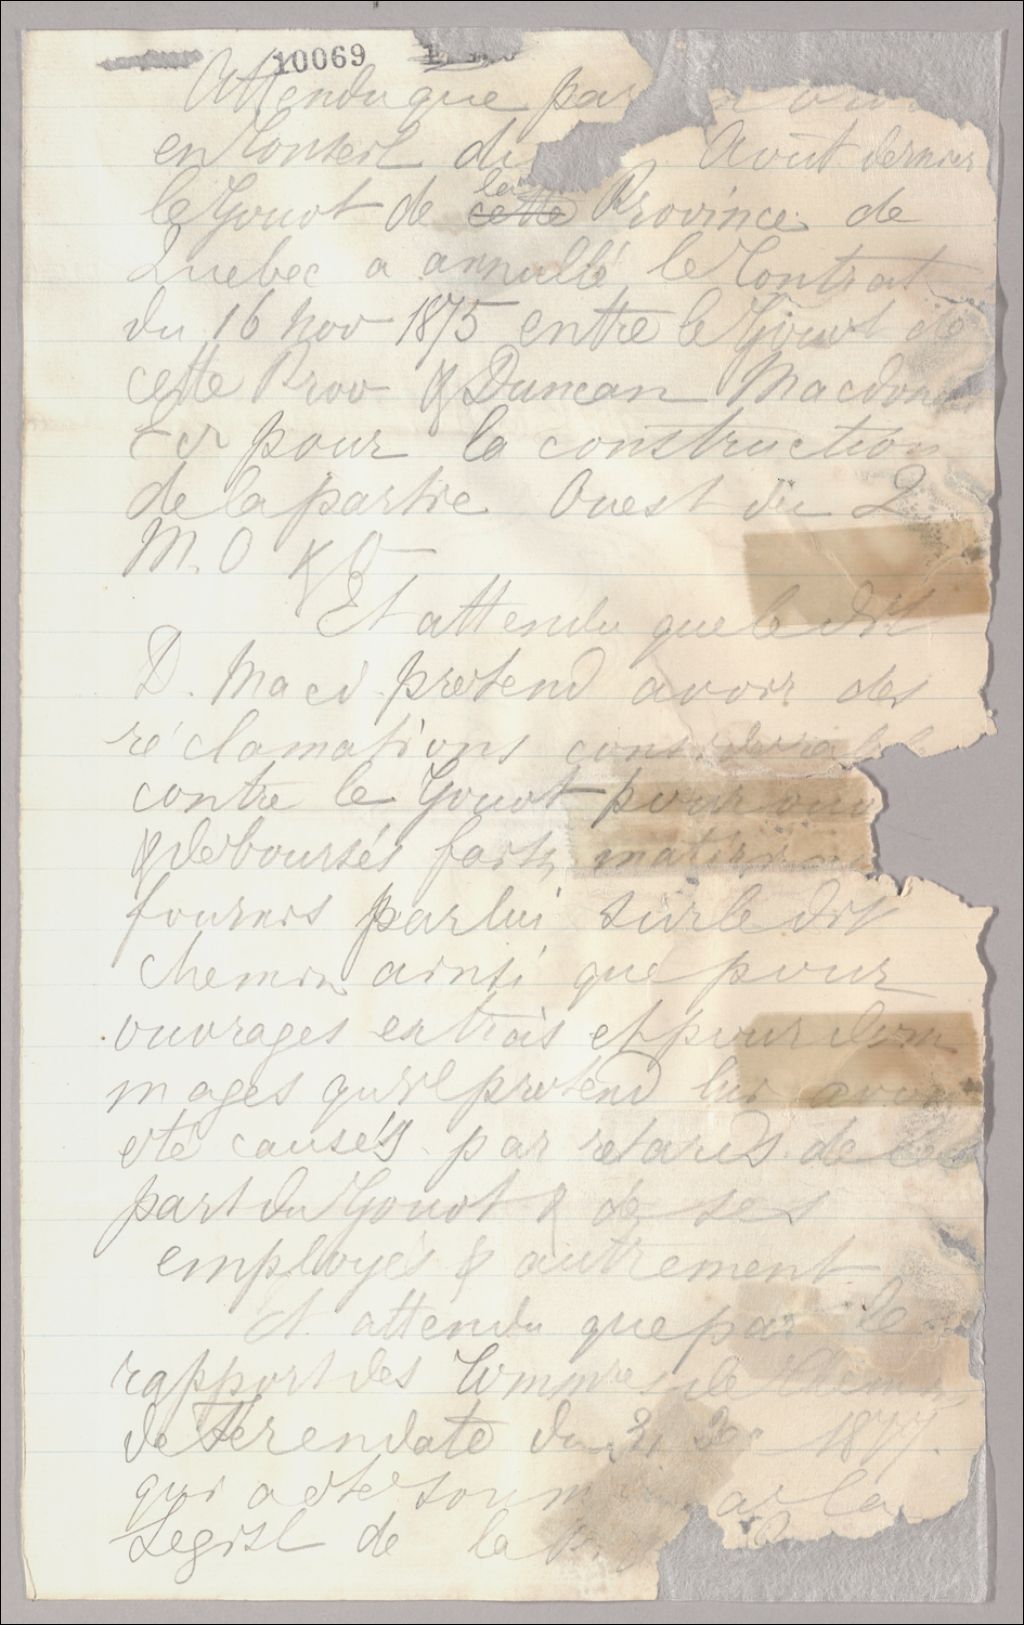 10069
Attendu que par
en Conseil du Aout dernier
le Gouvt de cette la Province de
Quebec a annullé le Contrat
du 16 Nov 1875 entre le Gouvt de
cette Prov & Duncan Macdonald
Ecr pour la construction
de la partie Ouest du Q
M. O & O
Et attendu que le dit
D. Macd pretend avoir des
réclamations considerables
contre le Gouvt pour ouv
& deboursés faits, materiaux
fournis par lui sur le dit
chemin ainsi que pour
ouvrages extras et pour dom
mages qu'il pretend lui avoir
été causés par retards de la
part du Gouvt & de ses
employés & autrement
Et attendu que par le
rapport des Commres de Chemin
de Fer en date du 31 Dec 1877.
qui a été soum par la
Legisl de la